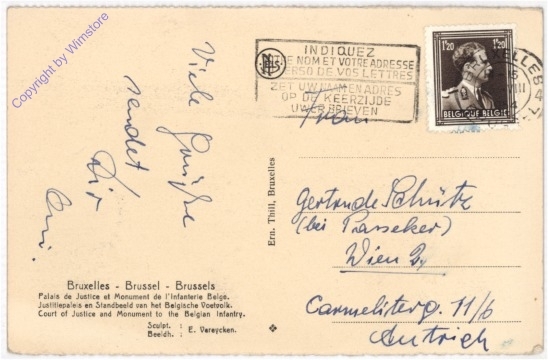 Copyright by Winstore
Viele Grüße
sendet
Dir
INDIQUEZ
E NOM ET VOTRE ADRESSE
VERSO DE VOS LETTRES
ZET UW NAAM EN ADRES
OP DE KEERZIJDE
UWER BRIEVEN
1.20 1.20
BELGIQUE·BELGIE
Frau
Gertrude Schütz
(bei Prasseker)
Wien 2,
Carmeliterg. 11/6
Autrich
Ern. Thill, Bruxelles
Bruxelles - Brussel - Brussels
Palais de Justice et Monument de l'Infanterie Belge.
Justitiepaleis en Standbeeld van het Belgische Voetvolk.
Court of Justice and Monument to the Belgian Infantry.
Sculpt. : E. Vereycken.
Beeldh. :